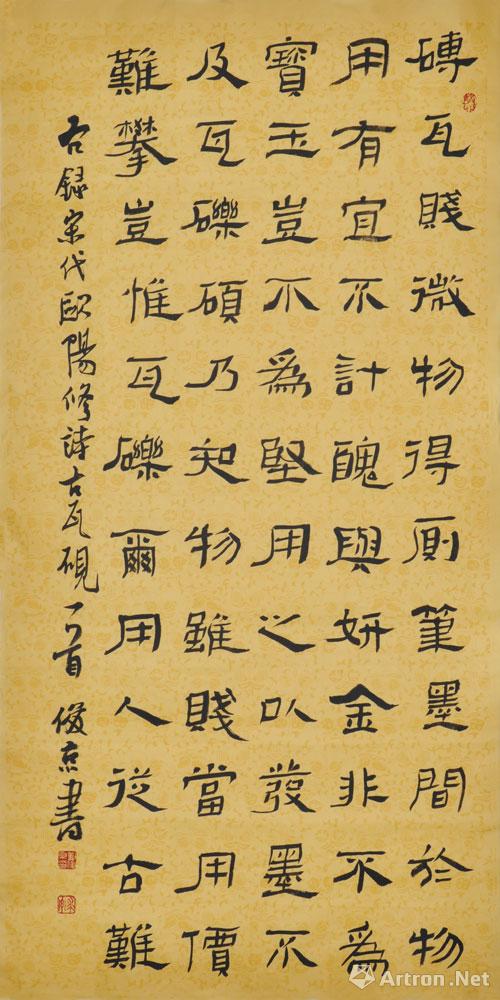 磚瓦賤微物得厠筆墨間於物
用有宜不計醜與妍金非不爲
寶玉豈不爲堅用之以發墨不
及瓦礫碩乃知物雖賤當用價
難攀豈惟瓦礫爾用人從古難
右録宋代歐陽修詩古瓦硯一首 俊京書
Artron.Net